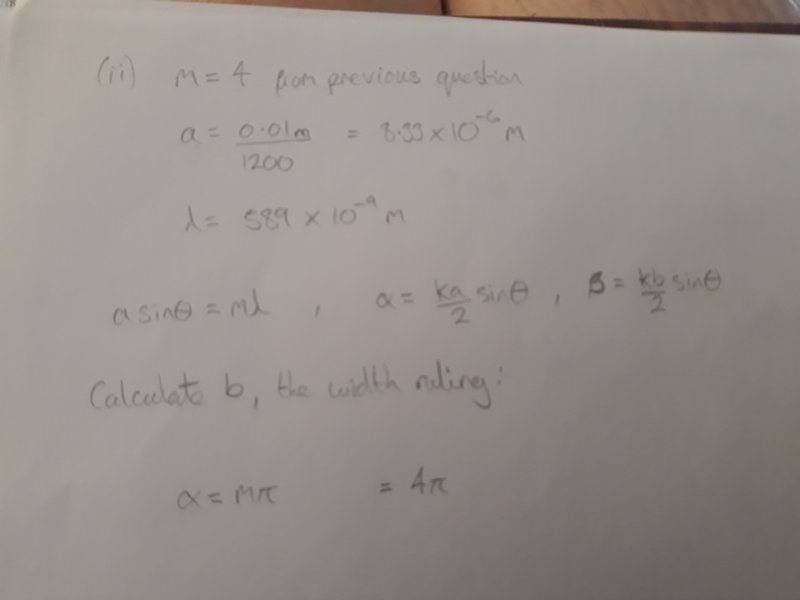 (ii) m = 4 from previous question
a = 0.01m / 1200 = 8.33 × 10⁻⁶ m
λ = 589 × 10⁻⁹ m
a sinθ = mλ , α = ka/2 sinθ , β = kb/2 sinθ
Calculate b, the width ruling:
α = mπ = 4π